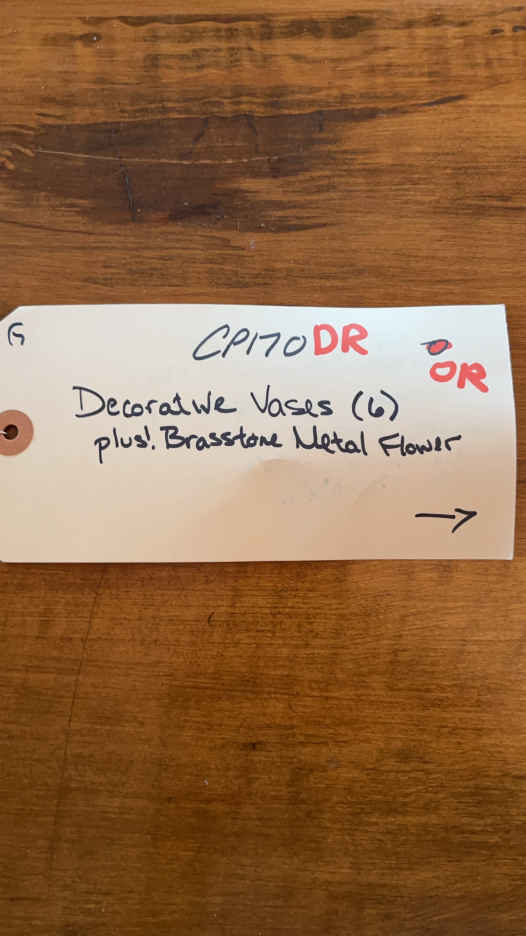 G
CP170DR
OR
Decorative Vases (6)
plus! Brasstone Metal Flower
→